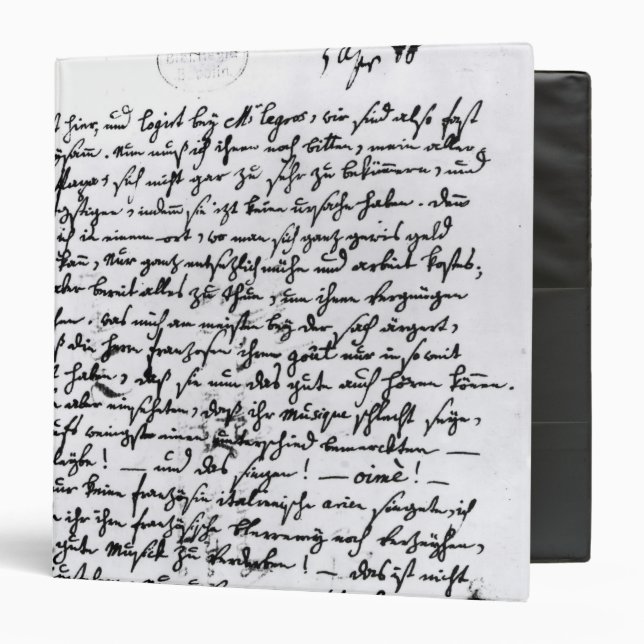 Berlin.
5 Apr
hier, und logirt bey Mr: legros, wir sind also fast
Nun muß ich ihnen noch bitten, mein aller
Papa, sich nicht gar zu sehr zu bekümmern, und
indemm sie izt keine ursache haben. denn
ich in einem ort, wo man sich ganz gewis geld
kann, Nur ganz entsetzlich mühe und arbeit kostes;
aber bereit alles zu thun, um ihnen vergnügen
was mich am meisten bey der sach ärgert,
die herrn franzosen ihren goût nur in so weit
haben, daß sie nun das gute auch hören können.
aber einseheten, daß ihr Musique schlecht seye,
aufs wenigste einen unterschied bemerckten —
— und das singen! — oimè! —
nur keine französin italienische arien singete, ich
ihr ihre französische Plererey noch verzeyhen,
gute Musik zu verderben! — das ist nicht